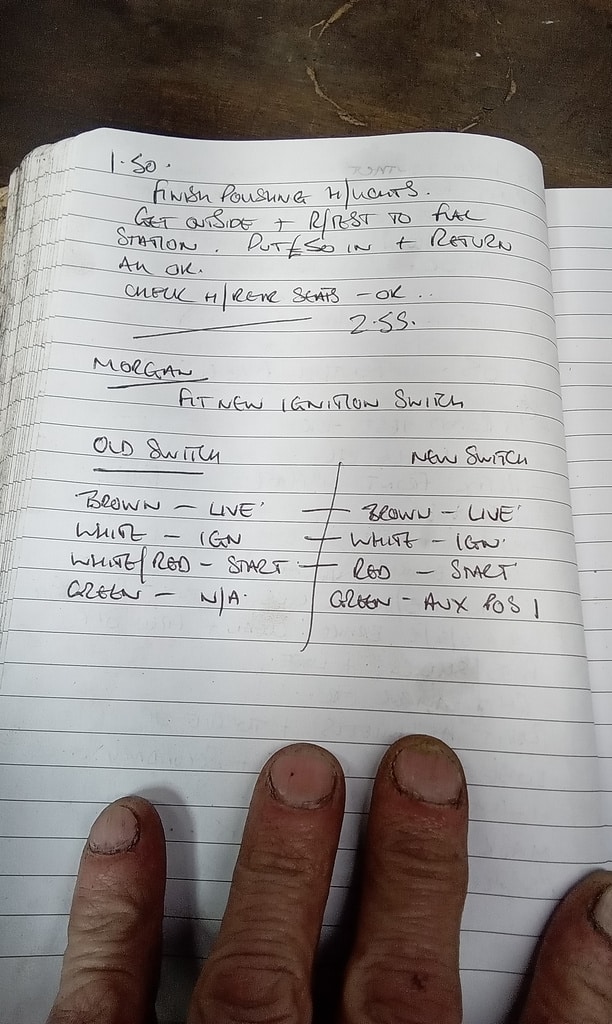 1.50.
FINISH POLISHING H/LIGHTS.
GET OUTSIDE + R/TEST TO FUAL
STATION. PUT £50 IN + RETURN
ALL OK.
CHECK H/REAR SEATS - OK ..
2.55.
MORGAN
FIT NEW IGNITION SWITCH
OLD SWITCH NEW SWITCH
BROWN - LIVE' — BROWN - LIVE'
WHITE - IGN — WHITE - IGN'
WHITE/RED - START — RED - START
GREEN - N/A. GREEN - AUX POS 1